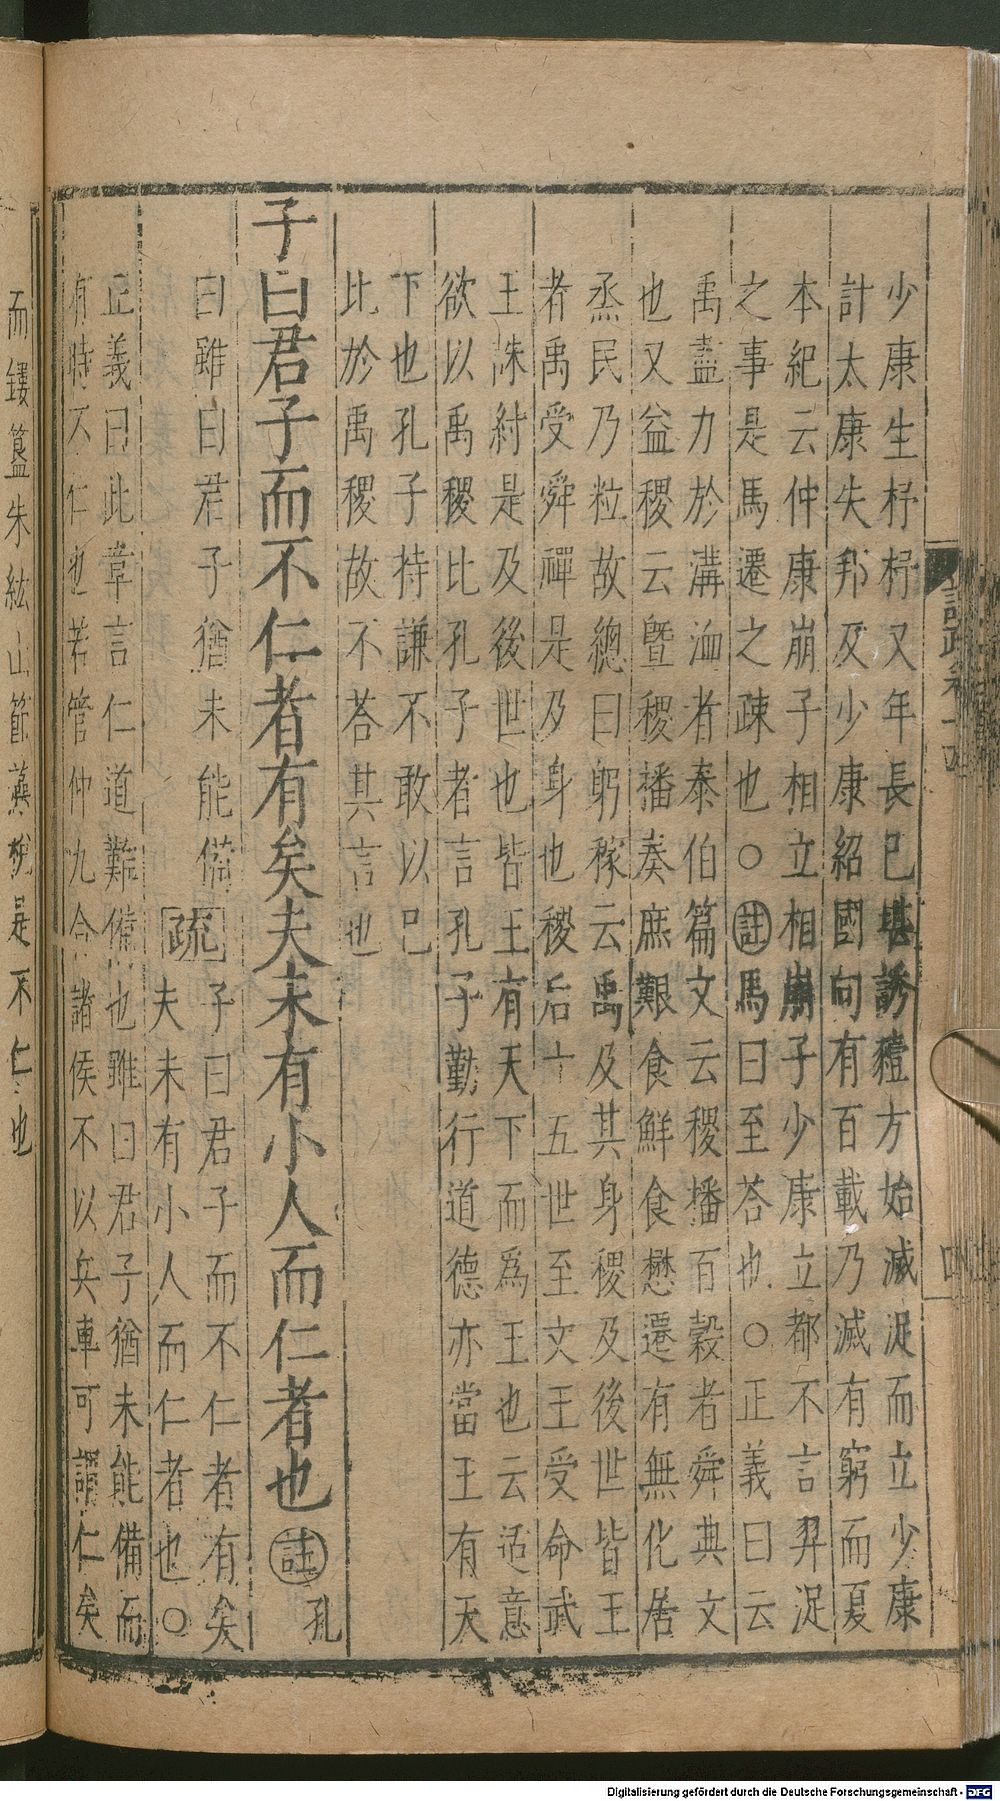 少康生杼杼又年長巳堪誘豷方始滅浞而立少康
計太康失邦及少康紹國向有百載乃滅有窮而夏
本紀云仲康崩子相立相崩子少康立都不言羿浞
之事是馬遷之疎也〇註馬曰至荅也〇正義曰云
禹盡力於溝洫者泰伯篇文云稷播百穀者舜典文
也又益稷云曁稷播奏庶艱食鮮食懋遷有無化居
烝民乃粒故總曰躬稼云禹及其身稷及後世皆王
者禹受舜禪是及身也稷后十五世至文王受命武
王誅紂是及後世也皆王有天下而爲王也云适意
欲以禹稷比孔子者言孔子勤行道德亦當王有天
下也孔子持謙不敢以巳
比於禹稷故不荅其言也
子曰君子而不仁者有矣夫未有小人而仁者也註孔
曰雖曰君子猶未能備
疏子曰君子而不仁者有矣
夫未有小人而仁者也〇
正義曰此章言仁道難備也雖曰君子猶未能備而
有時不仁也若管仲九合諸侯不以兵車可謂仁矣
而鏤簋朱紘山節藻梲是不仁也
四
Digitalisierung gefördert durch die Deutsche Forschungsgemeinschaft - DFG